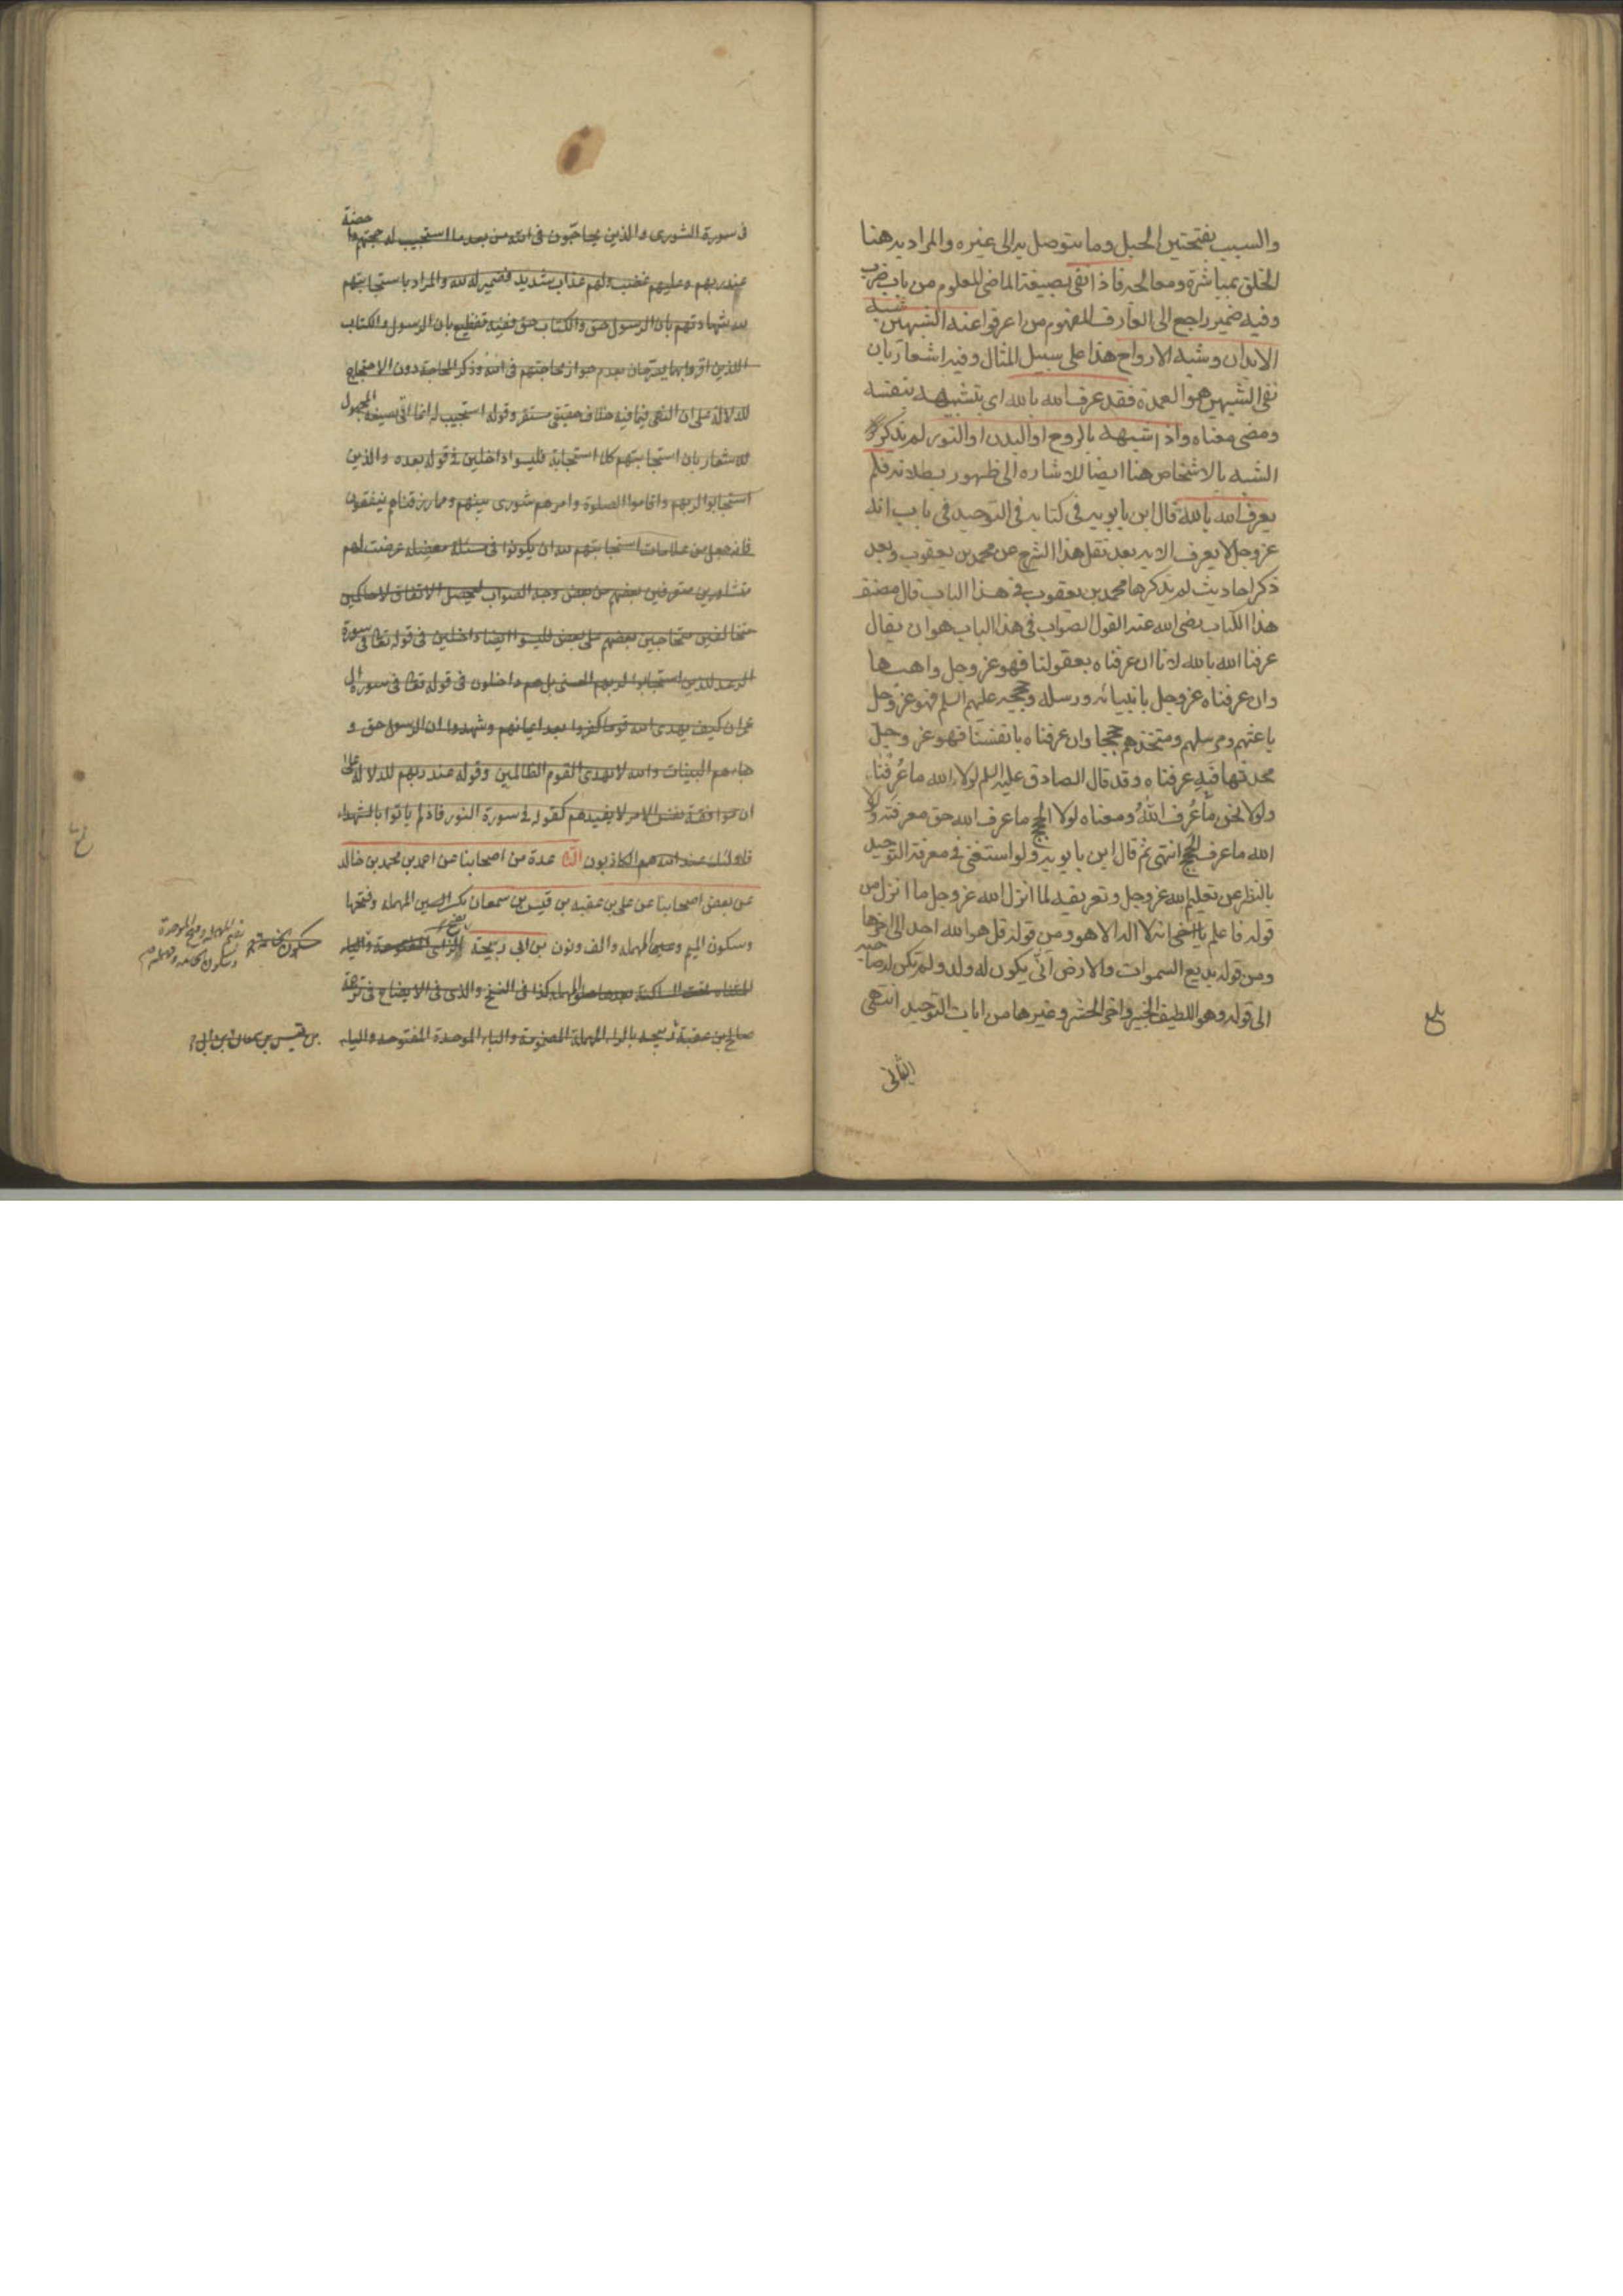 والسبب بفتحتين الحبل وما يتوصل به الى غيره والمراد به هنا
الخلق بمباشرة ومعالجه فاذا نفى بصيغة الماضى المعلوم من باب ضرب
وفيه ضمير راجع الى العارف المفهوم من اعرفوا عنه الشبهين شبه
الابدان وشبه الارواح هذا على سبيل المثال وفيه اشعار بان
نفى الشبهين هو العمدة فقد عرف الله بالله اى بتشبيهه بنفسه
ومضى معناه واذا شبهه بالروح او البدن او النور لم يذكر
الشبه بالاشخاص هنا ايضا للاشاره الى ظهور بطلانه فلم
يعرف الله بالله قال ابن بابويه فى كتابه فى التوحيد فى باب انه
عز وجل لا يعرف الا به بعد نقل هذا الشرح عن محمد بن يعقوب وبعد
ذكر احاديث لم يذكرها محمد بن يعقوب فى هذا الباب قال مصنف
هذا الكتاب رضى الله عنه القول الصواب فى هذا الباب هو ان يقال
عرفنا الله بالله لانا ان عرفناه بعقولنا فهو عز وجل واهبها
وان عرفناه عز وجل بانبيائه ورسله وحججه عليهم السلم فهو عز وجل
باعثهم ومرسلهم ومتخذهم حججا وان عرفناه بانفسنا فهو عز وجل
محدثها فبه عرفناه وقد قال الصادق عليه السلم لولا الله ما عُرِفْنا
ولولا نحن ما عُرِف اللهُ ومعناه لولا الحجج ما عرف الله حق معرفته ولولا
الله ما عرف الحجج انتهى ثم قال ابن بابويه ولو استغنى فى معرفة التوحيد
بالنظر عن تعليم الله عز وجل وتعريفه لما انزل الله عز وجل ما انزل من
قوله فاعلم انه لا اله الا هو ومن قوله قل هو الله احد الى اخرها
ومن قوله بديع السموات والارض انّى يكون له ولد ولم تكن له صاحبه
الى قوله وهو اللطيف الخبير واخر الحشر وغيرها من ايات التوحيد انتهى
الثانى
بلغ
فى سورة الشورى والذين يحاجّون فى الله من بعد ما استجيب له حجتهم داحضة
عند ربهم وعليهم غضب ولهم عذاب شديد فضمير له لله والمراد باستجابتهم
لله شهادتهم بان الرسول حق والكتاب حق ففيه تفظيع بان الرسول والكتاب
اللذين اقروا بهما يصرحان بعدم جواز محاجتهم فى الله وذكر المحاجة دون الاحتجاج
للدلالة على ان النهى فيما فيه خلاف حقيقى مستقر وقوله استجيب له انما اتى بصيغة المجهول
للاشعار بان استجابتهم كلا استجابة فليسوا داخلين فى قوله بعده والذين
استجابوا لربهم واقاموا الصلوة وامرهم شورى بينهم ومما رزقناهم ينفقون
فانه جعل من علامات استجابتهم لله ان يكونوا فى مسئلة معضلة عرضت لهم
متشاورين متعرفين بعضهم من بعض وجه الصواب ليحصل الاتفاق لا حاكمين
متخالفين متحاجين بعضهم على بعض فليسوا ايضا داخلين فى قوله تعالى فى سورة
الرعد للذين استجابوا لربهم الحسنى بل هم داخلون فى قوله تعالى فى سورة ال
عمران كيف يهدى الله قوما كفروا بعد ايمانهم وشهدوا ان الرسول حق و
جاءهم البينات والله لا يهدى القوم الظالمين وقوله عند ربهم للدلالة على
ان موافقة نفس الامر لا يفيدهم كقوله فى سورة النور فاذ لم ياتوا بالشهداء
فاولئك عند الله هم الكاذبون الثا عدة من اصحابنا عن احمد بن محمد بن خالد
عن بعض اصحابنا عن على بن عقبه بن قيس بن سمعان بكسر السين المهمله وفتحها
وسكون الميم وعين المهمله والف ونون بن ابى ربيحة الزاى المفتوحة والياء
المثناه تحت الساكنة بعدها حاء المهمله كذا فى النسخ والذى فى الايضاح فى ترجمة
صالح بن عقبة ربيحة بالراء المهملة المضمومة والباء الموحدة المفتوحة والياء
بضم المهمله وفتح الموحدة
بن قيس بن سمعان بن ابى